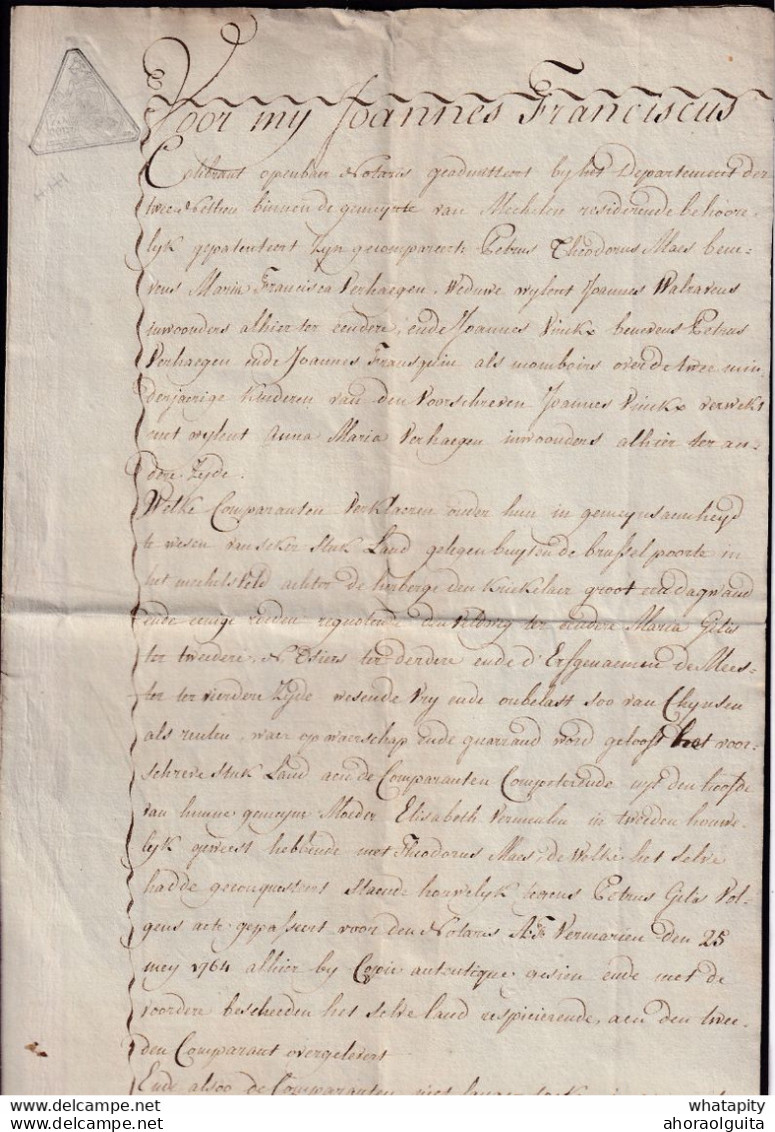 Voor my Joannes Franciscus
openbaer Notaris geadmitteert by het Departement der
twee Nethen binnen de gemeynte van Mechelen residerende behoore-
lyk gepatenteert zyn gecompareert Petrus Theodorus Maes bene-
vens Maria Francisca Verhaegen, Weduwe wylent Joannes Walravens
inwoonders alhier ter eendere, ende Joannes Vinckx benevens Petrus
Verhaegen ende Joannes Fransquin als momboirs over de twee min-
derjaerige Kinderen van den Voorschreven Joannes Vinckx verwekt
met wylent Anna Maria Verhaegen inwoonders alhier ter an-
dere zyde.
Welke Comparanten Verklaeren onder hun in gemeynsaemheyd
te wesen van seker stuk Land gelegen buyten de brussel poorte in
het mechelsveld achter de herberge den Kriekelaer groot een dagwand
ende eenige roeden regnoten den Veldweg ter eendere Maria Gilis
ter tweedere, N Osiers ter derdere ende d'Erfgenaemen de Mees-
ter ter vierdere Zyde wesende vry ende onbelast soo van Chynsen
als renten, waer op waerschap ende quarrand word gelooft het voor-
schreve stuk Land aen de Comparanten Competerende uyt den hoofde
van hunne gemeyne Moeder Elisabeth Vermeulen in tweeden houwe-
lyk geweest hebbende met Theodorus Maes, de Welke het selve
hadde geconquesteert staende houwelyk tegens Petrus Gilis Vol-
gens acte gepasseert voor den Notaris Vermarien den 25
mey 1764 alhier by Copie autentique gesien ende met de
voordere bescheeden het selve land respicierende, aen den twee-
den Comparant overgelevert
Ende alsoo de Comparanten
delcampe.net
whatapity
ahoraolguita